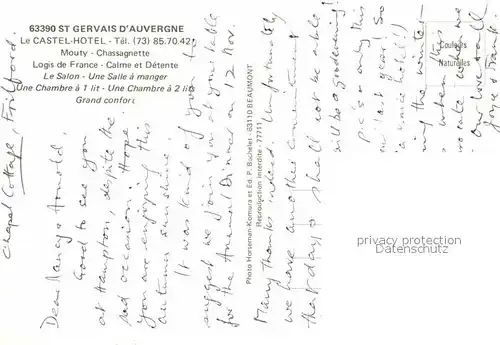 63390 ST GERVAIS D'AUVERGNE
Le CASTEL-HOTEL - Tél. (73) 85.70.42
Mouty - Chassagnette
Logis de France - Calme et Détente
Le Salon - Une Salle à manger
Une Chambre à 1 lit - Une Chambre à 2 lits
Grand confort
Chapel Cottage, Frilford.
Dear Nancy & Arnold,
Good to see you
at Hampton, despite the
sad occasion. Hope
you are enjoying this
autumn sunshine
It was kind of you to
suggest we join you at your table
for the Annual Dinner on 12 Nov.
Many thanks indeed. Unfortunately
we have another commitment
that day & shall not be able
Photo Horseman-Komura et Ed. P. Buchelet - 63110 BEAUMONT
Reproduction interdite - 77711
Couleurs
Naturelles
privacy protection
Datenschutz